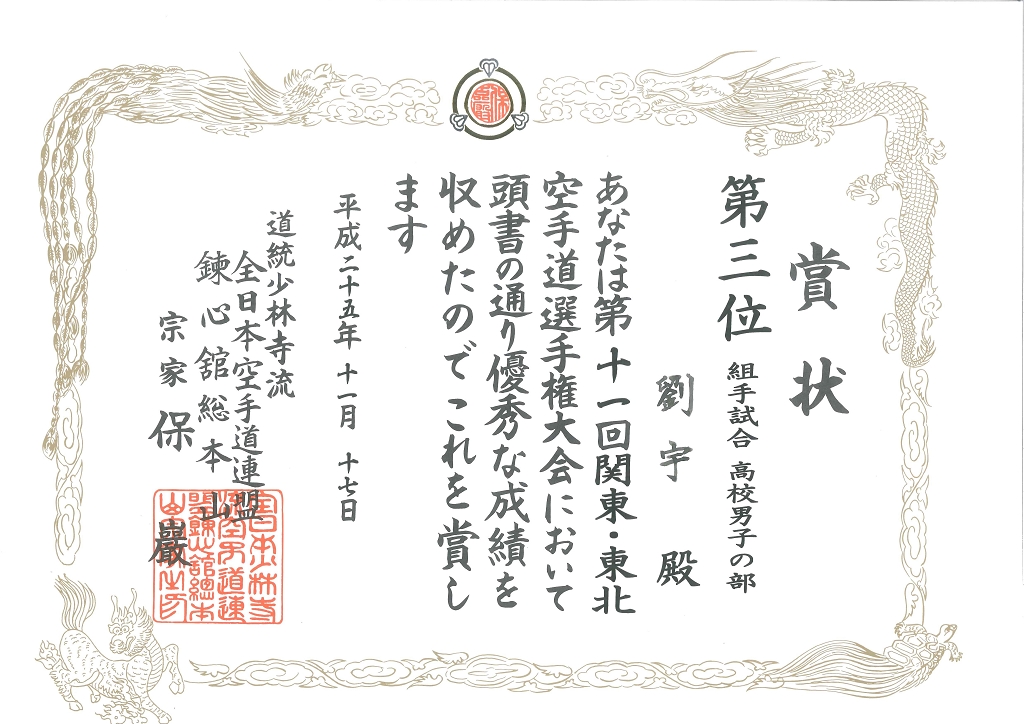 賞状
第三位 組手試合 高校男子の部
劉宇 殿
あなたは第十一回関東・東北
空手道選手権大会において
頭書の通り優秀な成績を
収めたのでこれを賞し
ます
平成二十五年 十一月 十七日
道統少林寺流
全日本空手道連盟
錬心舘総本山
宗家 保 巖